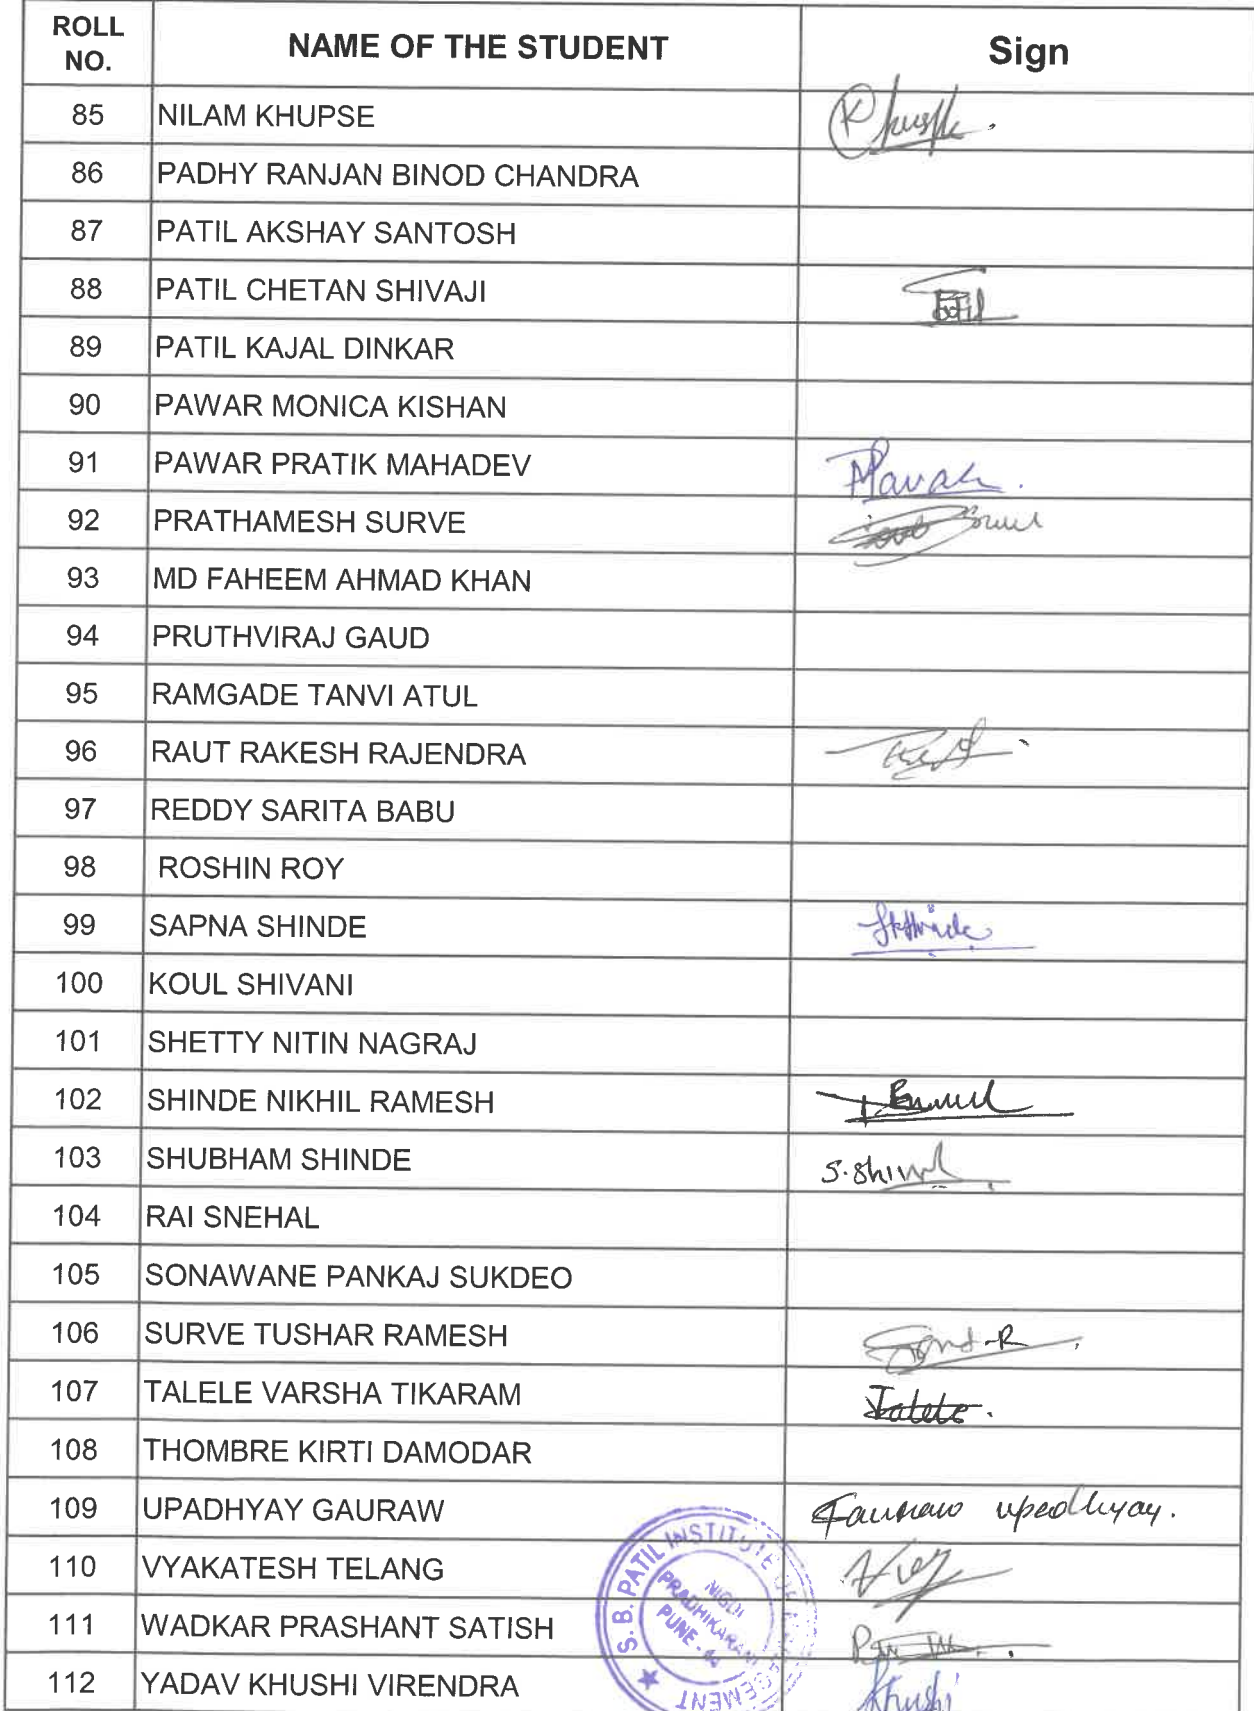 ROLL NO. NAME OF THE STUDENT Sign
85 NILAM KHUPSE
86 PADHY RANJAN BINOD CHANDRA
87 PATIL AKSHAY SANTOSH
88 PATIL CHETAN SHIVAJI Patil
89 PATIL KAJAL DINKAR
90 PAWAR MONICA KISHAN
91 PAWAR PRATIK MAHADEV
92 PRATHAMESH SURVE
93 MD FAHEEM AHMAD KHAN
94 PRUTHVIRAJ GAUD
95 RAMGADE TANVI ATUL
96 RAUT RAKESH RAJENDRA
97 REDDY SARITA BABU
98 ROSHIN ROY
99 SAPNA SHINDE
100 KOUL SHIVANI
101 SHETTY NITIN NAGRAJ
102 SHINDE NIKHIL RAMESH
103 SHUBHAM SHINDE
104 RAI SNEHAL
105 SONAWANE PANKAJ SUKDEO
106 SURVE TUSHAR RAMESH
107 TALELE VARSHA TIKARAM Talele.
108 THOMBRE KIRTI DAMODAR
109 UPADHYAY GAURAW Gauraw upadhyay.
110 VYAKATESH TELANG
111 WADKAR PRASHANT SATISH
112 YADAV KHUSHI VIRENDRA Khushi
S. B. PATIL INSTITUTE OF MANAGEMENT
NIGDI
PRADHIKARAN
PUNE - 44